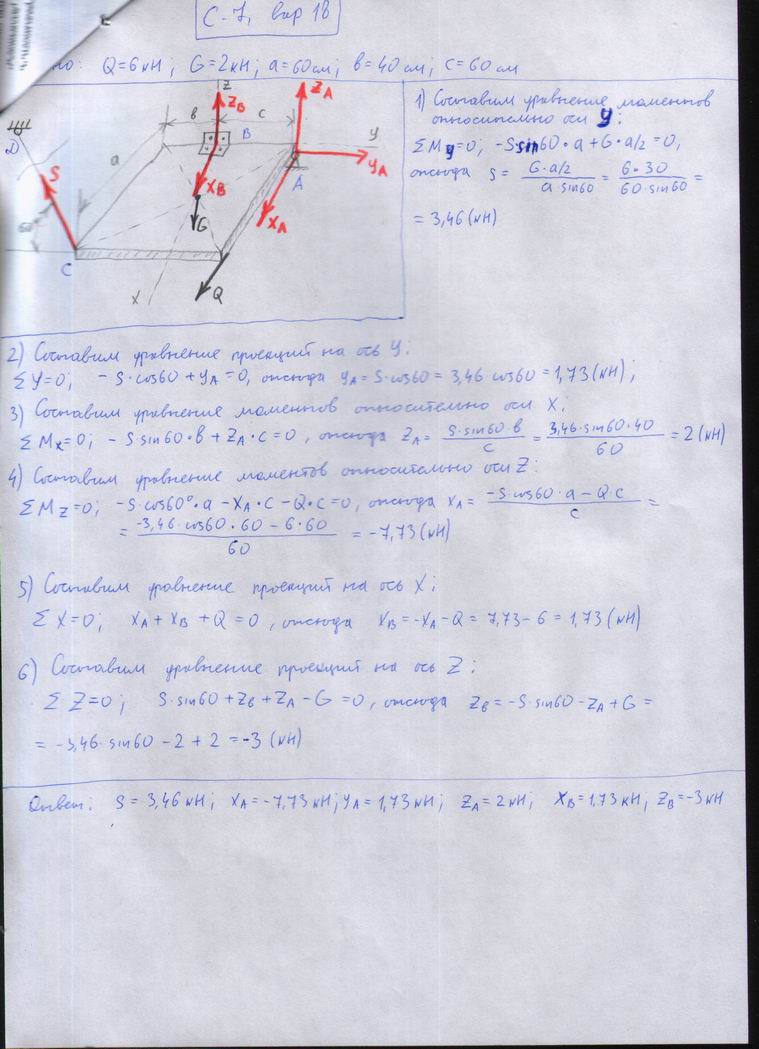 С-7, вар 18
но: Q=6кН; G=2кН; a=60см; в=40см; c=60см
Z
Z_B
Z_A
в
c
B
y
D
a
S
X_B
y_A
A
60
G
X_A
C
X
Q
1) Составим уравнение моментов
относительно оси y:
ΣM_y=0; -S·sin60·a+G·a/2=0,
откуда S= (G·a/2)/(a sin60) = (6·30)/(60·sin60) =
= 3,46(кН)
2) Составим уравнение проекций на ось y:
Σy=0; -S·cos60+y_A=0, откуда y_A=S·cos60=3,46·cos60=1,73(кН);
3) Составим уравнение моментов относительно оси X:
ΣM_x=0; -S·sin60·в+Z_A·c=0, откуда Z_A= (S·sin60·в)/c = (3,46·sin60·40)/60 =2(кН)
4) Составим уравнение моментов относительно оси Z:
ΣM_Z=0; -S·cos60°·a-X_A·c-Q·c=0, откуда X_A= (-S·cos60·a-Q·c)/c =
= (-3,46·cos60·60-6·60)/60 = -7,73(кН)
5) Составим уравнение проекций на ось X:
ΣX=0; X_A+X_B+Q=0, откуда X_B=-X_A-Q=7,73-6=1,73(кН)
6) Составим уравнение проекций на ось Z:
ΣZ=0; S·sin60+Z_B+Z_A-G=0, откуда Z_B=-S·sin60-Z_A+G=
=-3,46·sin60-2+2=-3(кН)
Ответ: S=3,46кН; X_A=-7,73кН; y_A=1,73кН; Z_A=2кН; X_B=1,73кН; Z_B=-3кН